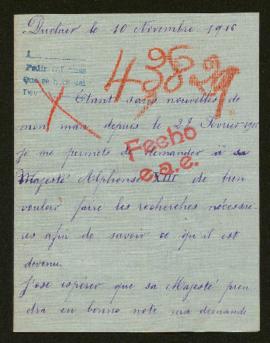 Duclair le 10 Novembre 1916
Étant sans nouvelles de
mon mari depuis le 22 Février
je me permets de demander à sa
Majesté Alphonse XIII de bien
vouloir faire les recherches nécessai-
res afin de savoir ce qu'il est
devenu.
J'ose espérer que sa Majesté pren
dra en bonne note ma demande
Fecho
e.a.e.